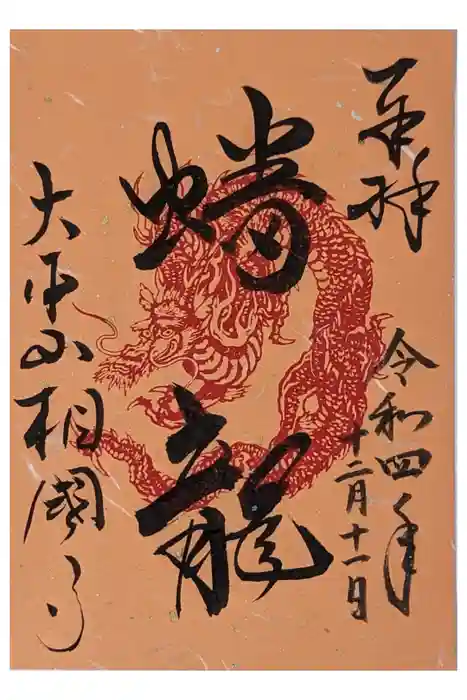 奉拝
令和四年
十二月十一日
蟠龍
大本山相國寺